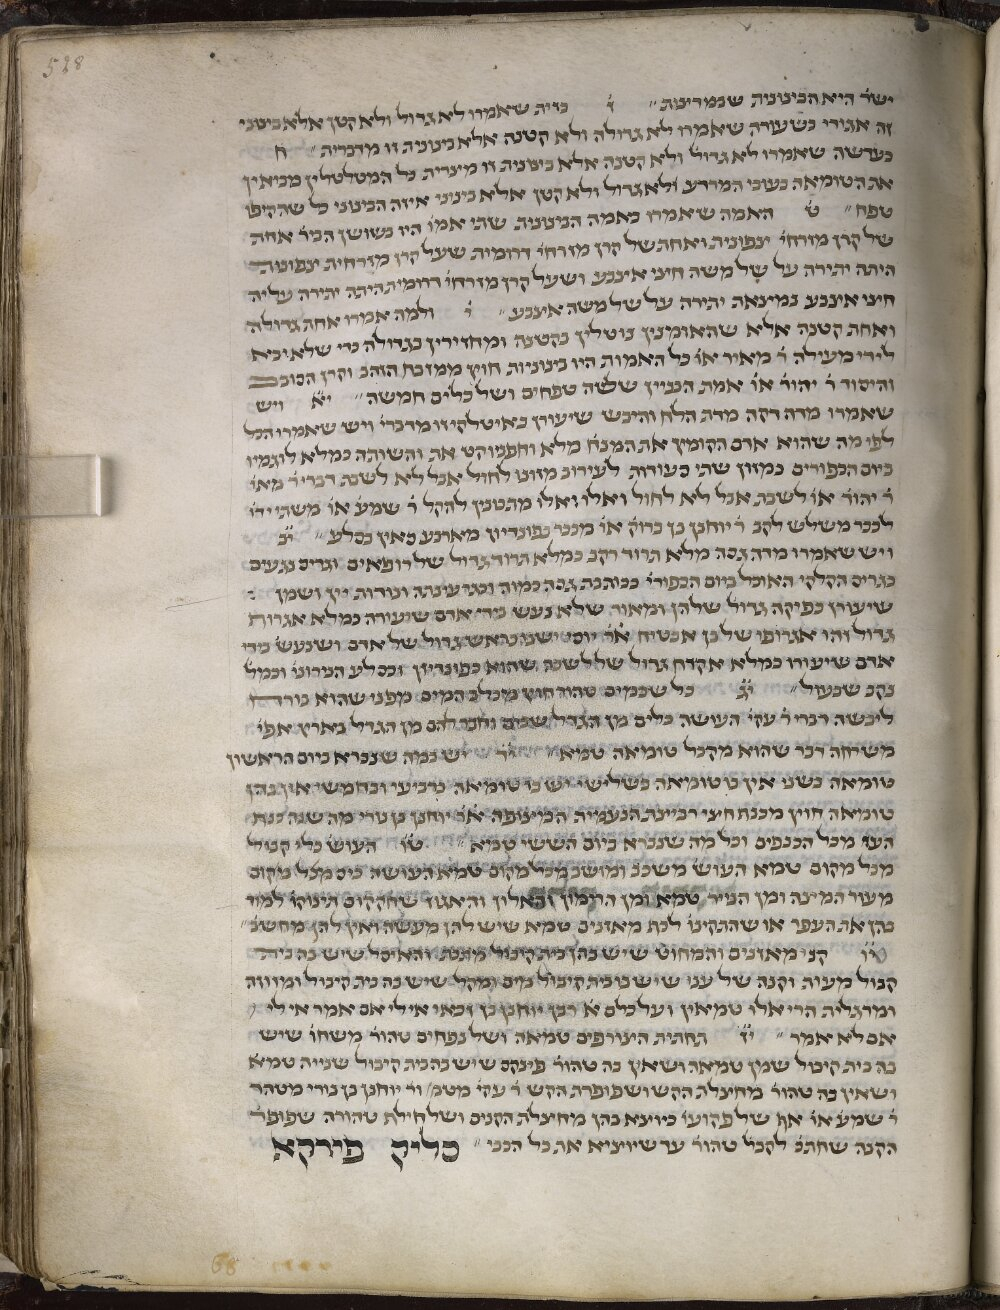 528
ישר׳ היא הבינונית שבמדינות״ ז׳ כזית שאמרו לא גדול ולא קטן אלא בינוני
זה אגורי כשעורה שאמרו לא גדולה ולא קטנה אלא בינונית זו מדברית״ ח
כעדשה שאמרו לא גדול׳ ולא קטנה אלא בינונית זו מיצרית כל המטלטלין מביאין
את הטומאה בעובי המרדע ולא גדול ולא קטן אלא בינוני איזה הבינוני כל שהקיפו
טפח״ ט׳ האמה שאמרו באמה הבינונית שתי אמו׳ היו בשושן הביר׳ אחת
של קרן מזרחי׳ יצפונית ואחת של קרן מזרחי׳ דרומית שעל קרן מזרחית יצפונית
היתה יתירה על של משה חיצי איצבע ושעל קרן מזרחי׳ דרומית היתה יתירה עליה
חיצי איצבע נמיצאת יתירה על של משה איצבע״ י׳ ולמה אמרו אחת גדולה
ואחת קטנה אלא שהאומנין נוטלין בקטנה ומחזירין בגדולה כדי שלא יבא
לידי מעילה ר׳ מאיר או׳ כל האמות היו בינוניות חוץ ממזבח הזהב וקרן הסובב
והיסוד ר׳ יהוד׳ או׳ אמת הבניין ששה טפחים ושל כלים חמשה״ יא׳ ויש
שאמרו מדה דקה מדת הלח והיבש שיעורן באיטלקי זו מדברי׳ ויש שאמרו הכל
לפי מה שהוא אדם הקומץ את המנח׳ מלא וחפניו הקט׳ את והשותה כמלא לוגמיו
ביום הכפורים כמזון שתי סעודות לעירוב מזונו לחול אבל לא לשבת דברי ר׳ מאי׳
ר׳ יהוד׳ או׳ לשבת אבל לא לחול ואלו ואלו מתכונין להקל ר׳ שמע׳ או׳ משתי ידו׳
לככר משלש לקב ר׳ יוחנן בן ברוק׳ או׳ מככר בפונדיון מארבע סאין בסלע״ יב׳
ויש שאמרו מדה גסה מלא תרוד רקב כמלא תרוד גדול של רופאים וגריס נגעים
כגריס הקלקי האוכל ביום הכפורי׳ ככותבת גסה כמוה וכגרעינתה ונודות יין ושמן
שיעורן כפיקה גדול׳ שלהן ומאור שלא נעש׳ בידי אדם שיעורה כמלא אגרוף
גדול זהו אגרופו של בן אבטיח א׳ר יוס׳ ישנו כראש גדול של אדם ושנעש׳ בידי
אדם שיעורו כמלא אקדח גדול של לשכה שהוא כפונדיון וכסלע הנירוני׳ וכמל׳
נקב שבעול״ יג׳ כל שבמים טהור חוץ מכלב המים מפני שהוא בורח
ליבשה דברי ר׳ עקי׳ העושה כלים מן הגדל שבים וחברהם מן הגדל בארץ אפי׳
משיחה דבר שהוא מקבל טומאה טמא״ יד׳ יש במה שנברא ביום הראשון
טומאה בשני אין בו טומאה בשלישי יש בו טומאה ברביעי ובחמשי אין בהן
טומאה חוץ מכנת חיצי רביינה הנעמית המיצופה א׳ר יוחנן בן נורי מה שנה כנף
העז מכל הכנפים וכל מה שנברא ביום הששי טמא״ טו׳ העוש׳ כלי קבול
מכל מקום טמא העוש׳ משכב ומושב מכל מקום טמא העושה כיס מכל מקום
מעור המיצה ומן הנייר טמא ומן הרימון והאלון והאגוז שחקקום תינוקו׳ למוד
בהן את העפר או שהתקינו׳ לכף מאזנים טמא שיש להן מעשה ואין להן מחשב׳״
י׳ו׳ קני מאזנים והמחוק שיש בהן בית קיבול מתכות והאיסל שיש בה בית
קבול מעות וקנה של עני שיש בו בית קיבול מים ומקל שיש בה בית קיבול ומזוזה
ומרגלית הרי אלו טמאין ועל כלם א׳ רבן יוחנן בן זכאי אוי לי אם אמר אוי לי
אם לא אמר״ יז׳ תחתית היצורפים טמאה ושל נפחים טהור׳ משחז׳ שיש
בה בית קיבול שמן טמאה ושאין בה טהור׳ פינקס שיש בה בית קיבול שנייה טמא
ושאין בה טהור׳ מחיצלת הקש ושפופרת הקש ר׳ עקי׳ מטמ׳ ור׳ יוחנן בן נורי מטהר
ר׳ שמע׳ או׳ אף של פקועו׳ כיוצא בהן מחיצלת הקנים ושל חילת טהורה שפופר׳
הקנה שחתכ׳ לקבל טהור׳ עד שיוציא את כל הככי״ סליק פירקא
68